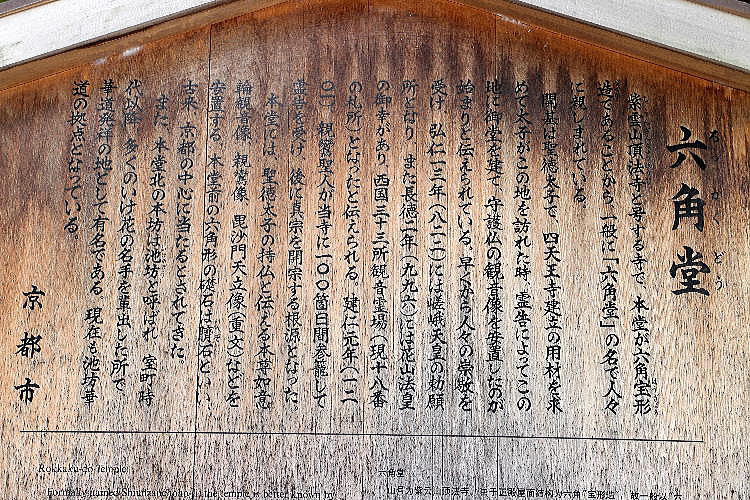 六角堂
紫雲山頂法寺と号する寺で、本堂が六角宝形
造であることから、一般に「六角堂」の名で人々
に親しまれている。
開基は聖徳太子で、四天王寺建立の用材を求
めて太子がこの地を訪れた時、霊告によってこの
地に御堂を建て、守護仏の観音像を安置したのが
始まりと伝えられている。早くから人々の崇敬を
受け、弘仁一三年(八二二)には嵯峨天皇の勅願
所となり、また長徳二年(九九六)には花山法皇
の御幸があり、西国三十三所観音霊場(現十八番
の札所)となったと伝えられる。建仁元年(一二
〇一)、親鸞聖人が当寺に一〇〇箇日間参籠して
霊告を受け、後に真宗を開宗する根源となった。
本堂には、聖徳太子の持仏と伝える本尊如意
輪観音像、親鸞像、毘沙門天立像(重文)などを
安置する。本堂前の六角形の礎石は臍石といい、
古来、京都の中心に当たるとされてきた。
また、本堂北の本坊は池坊と呼ばれ、室町時
代以降、多くのいけ花の名手を輩出した所で、
華道発祥の地として有名である。現在も池坊華
道の拠点となっている。
京都市
Rokkaku-do Temple
六角堂